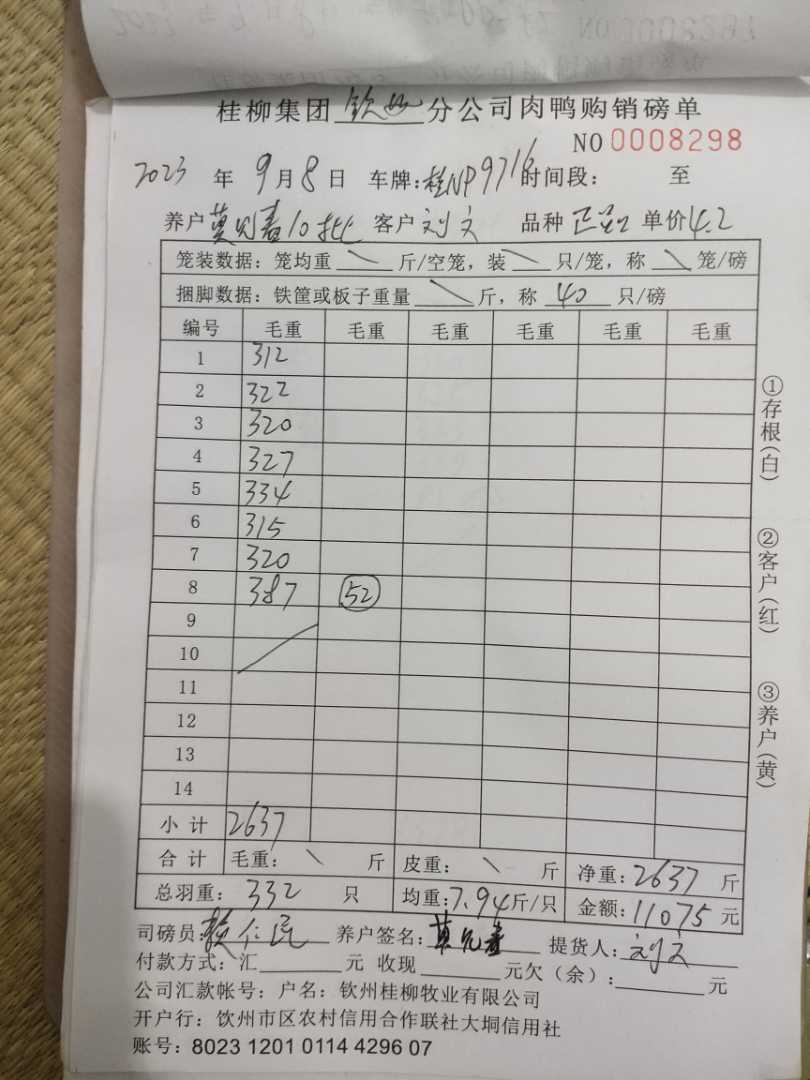 桂柳集团 钦州 分公司肉鸭购销磅单
NO 0008298
2023 年 9 月 8 日 车牌:桂NP9716 时间段: 至
养户 莫 10批 客户 刘文 品种 单价 4.2
笼装数据: 笼均重 \ 斤/空笼, 装 \ 只/笼, 称 \ 笼/磅
捆脚数据: 铁筐或板子重量 \ 斤, 称 40 只/磅
编号 毛重 毛重 毛重 毛重 毛重 毛重
1 312
2 322
3 320
4 327
5 334
6 315
7 320
8 387 52
9
10
11
12
13
14
小计 2637
合计 毛重: \ 斤 皮重: \ 斤 净重: 2637 斤
总羽重: 332 只 均重: 7.94 斤/只 金额: 11075 元
司磅员: 养户签名: 莫 提货人: 刘文
付款方式: 汇 元 收现 元欠(余): 元
公司汇款帐号: 户名: 钦州桂柳牧业有限公司
开户行: 饮州市区农村信用合作联社大垌信用社
账号: 8023 1201 0114 4296 07
①存根(白)
②客户(红)
③养户(黄)